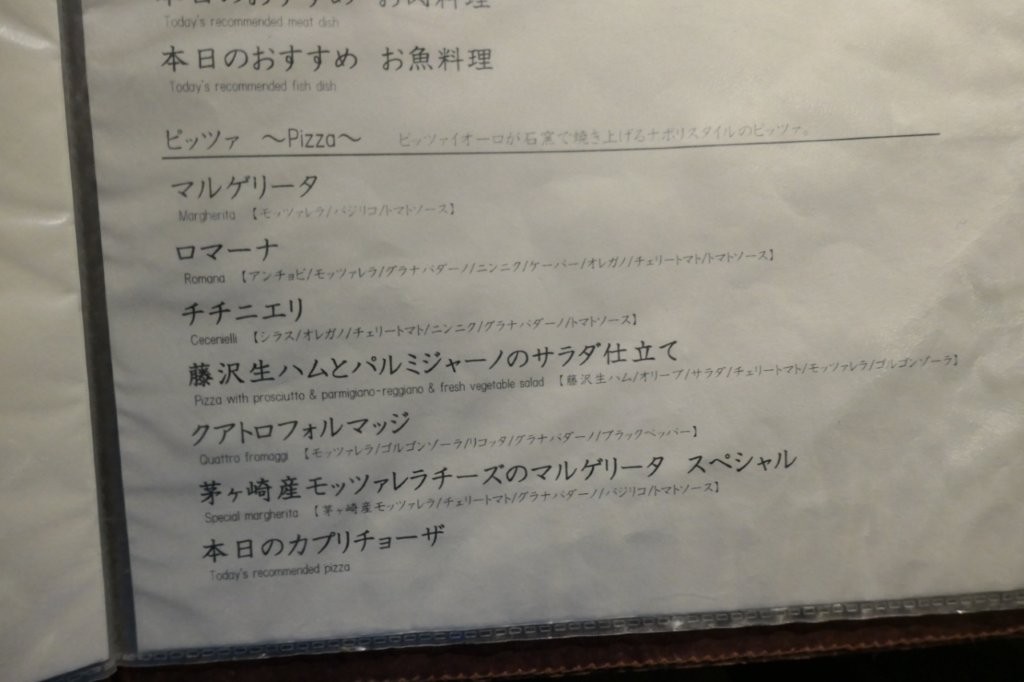 本日のおすすめ お肉料理
Today's recommended meat dish
本日のおすすめ お魚料理
Today's recommended fish dish
ピッツァ ～Pizza～ ピッツァイオーロが石窯で焼き上げるナポリスタイルのピッツァ。
マルゲリータ
Margherita 【モッツァレラ/バジリコ/トマトソース】
ロマーナ
Romana 【アンチョビ/モッツァレラ/グラナパダーノ/ニンニク/ケーパー/オレガノ/チェリートマト/トマトソース】
チチニエリ
Cecenielli 【シラス/オレガノ/チェリートマト/ニンニク/グラナパダーノ/トマトソース】
藤沢生ハムとパルミジャーノのサラダ仕立て
Pizza with prosciutto & parmigiano-reggiano & fresh vegetable salad 【藤沢生ハム/オリーブ/サラダ/チェリートマト/モッツァレラ/ゴルゴンゾーラ】
クアトロフォルマッジ
Quattro fromaggi 【モッツァレラ/ゴルゴンゾーラ/リコッタ/グラナパダーノ/ブラックペッパー】
茅ヶ崎産モッツァレラチーズのマルゲリータ スペシャル
Special margherita 【茅ヶ崎産モッツァレラ/チェリートマト/グラナパダーノ/バジリコ/トマトソース】
本日のカプリチョーザ
Today's recommended pizza